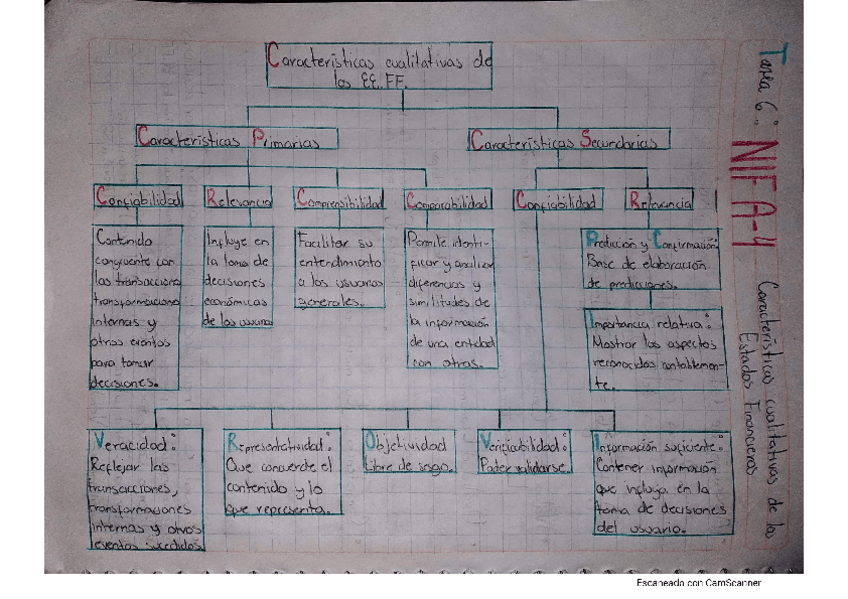 Tarea 6:
NIF A-4
Características cualitativas de los
Estados Financieros
Características cualitativas de
los EE.FF.
Características Primarias
Características Secundarias
Confiabilidad
Relevancia
Comprensibilidad
Comparabilidad
Confiabilidad
Relevancia
Contenido
congruente con
las transacciones
transformaciones
internas y
otros eventos
para tomar
decisiones.
Influye en
la toma de
decisiones
económicas
de los usuarios
Facilitar su
entendimiento
a los usuarios
generales.
Permite identi-
ficar y analizar
diferencias y
similitudes de
la información
de una entidad
con otras.
Predicción y Confirmación:
Base de elaboración
de predicciones.
Importancia relativa:
Mostrar los aspectos
reconocidos contablemen-
te.
Veracidad:
Reflejar las
transacciones,
transformaciones
internas y otros
eventos sucedidos
Representatividad:
Que concuerde el
contenido y lo
que representa.
Objetividad
Libre de sesgo.
Verificabilidad:
Poder validarse.
Información suficiente:
Contener información
que influya en la
toma de decisiones
del usuario.
Escaneado con CamScanner